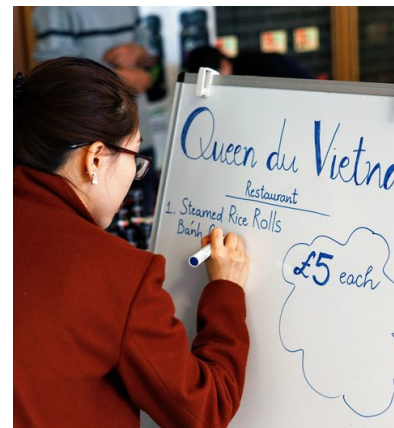 Queen du Vietna
Restaurant
1. Steamed Rice Rolls
Bánh
£5 each